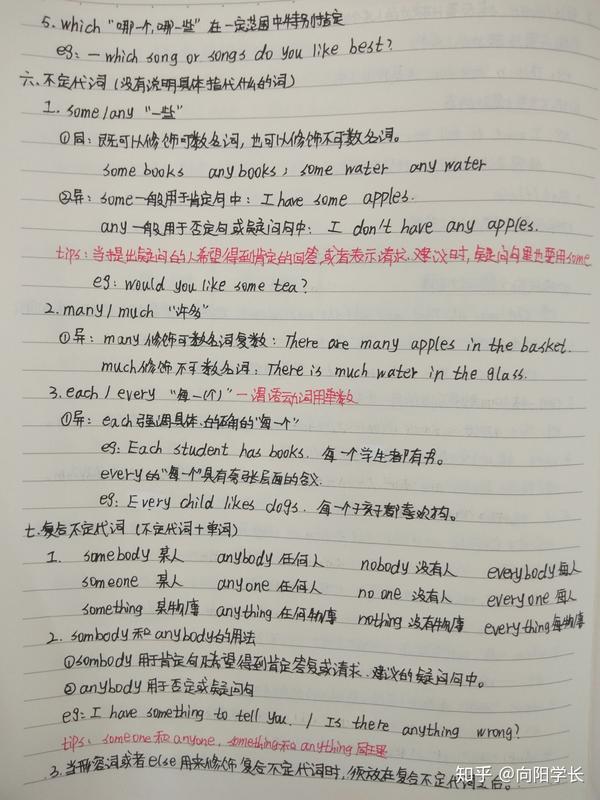 5. which "哪一个,哪一些" 在一定范围中特别指定
eg: — which song or songs do you like best?
六. 不定代词 (没有说明具体指代什么的词)
1. some/any "一些"
①同: 既可以修饰可数名词, 也可以修饰不可数名词。
some books any books; some water any water
②异: some一般用于肯定句中: I have some apples.
any 一般用于否定句或疑问句中: I don't have any apples.
tips: 当提出疑问的人希望得到肯定的回答, 或者表示请求、建议时, 疑问句里也要用some
eg: would you like some tea?
2. many/much "许多"
①异: many修饰可数名词复数: There are many apples in the basket.
much修饰不可数名词: There is much water in the glass.
3. each/every "每一(个)" — 谓语动词用单数
①异: each强调具体、的确的"每一个"
eg: Each student has books. 每一个学生都有书。
every的"每一个"具有夸张层面的含义.
eg: Every child likes dogs. 每一个孩子都喜欢狗。
七. 复合不定代词 (不定代词+单词)
1. somebody 某人 anybody 任何人 nobody 没有人 everybody 每人
someone 某人 anyone 任何人 no one 没有人 everyone 每人
something 某物/事 anything 任何物/事 nothing 没有物/事 everything 每物/事
2. sombody 和 anybody的用法
①sombody 用于肯定句及希望得到肯定答复或请求、建议的疑问句中。
②anybody 用于否定或疑问句
eg: I have something to tell you. / Is there anything wrong?
tips: someone 和 anyone, something和 anything 同理
3. 当形容词或者else用来修饰 复合不定代词时, 须放在复合不定代词之后。
知乎 @向阳学长